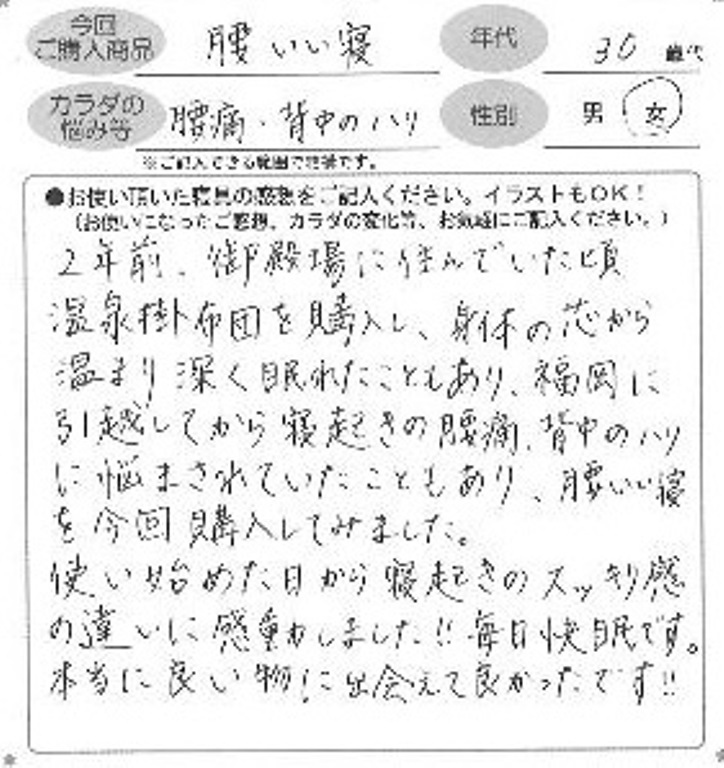 今回
ご購入商品
腰いい寝
年代
30 歳代
カラダの
悩み等
腰痛・背中のハリ
性別
男 女
※ご記入できる範囲で結構です。
●お使い頂いた寝具の感想をご記入ください。イラストもOK！
（お使いになったご感想、カラダの変化等、お気軽にご記入ください。）
2年前、御殿場に住んでいた頃
温泉掛布団を購入し、身体の芯から
温まり深く眠れたこともあり、福岡に
引越してから寝起きの腰痛、背中のハリ
に悩まされていたこともあり、腰いい寝
を今回購入してみました。
使い始めた日から寝起きのスッキリ感
の違いに感動しました!!毎日快眠です。
本当に良い物に出会えて良かったです!!